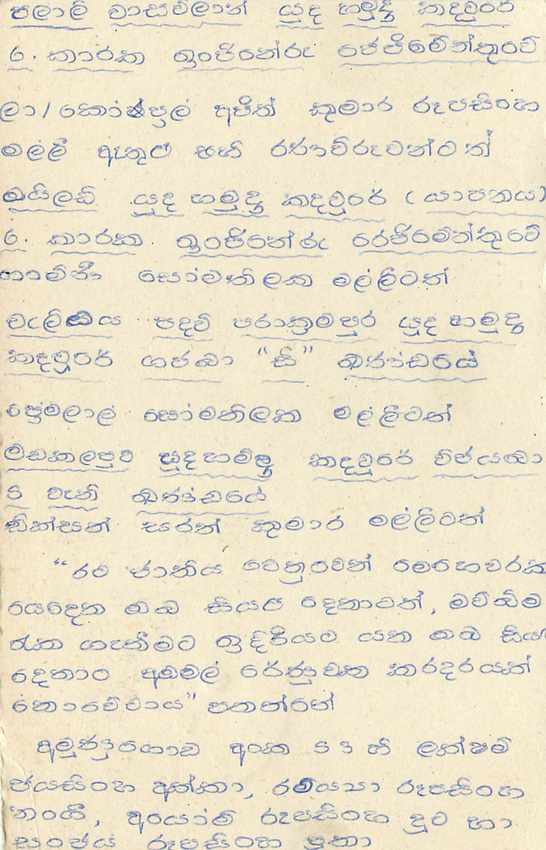 පලාලි වාසවිලාන් යුද හමුදා කඳවුරේ
ඉංජිනේරු රෙජිමේන්තුවේ
ලා/කෝප්‍රල් අජිත් කුමාර රූපසිංහ
මල්ලී ඇතුළු සහ රණවිරුවන්ටත්
මයිලඩි යුද හමුදා කඳවුරේ (යාපනය)
ඉංජිනේරු රෙජිමේන්තුවේ
ගාමිනී සෝමතිලක මල්ලිටත්
වැලිඔය පදවි පරාක්‍රමපුර යුද හමුදා
කඳවුරේ ගජබා "සී" ඛණ්ඩයේ
ප්‍රේමලාල් සෝමතිලක මල්ලිටත්
මඩකලපුව යුද හමුදා කඳවුරේ විජයබා
5 වැනි ඛණ්ඩයේ
ඩික්සන් සරත් කුමාර මල්ලිටත්
"රට ජාතිය වෙනුවෙන් මෙහෙවරක
යෙදෙන ඔබ සියළු දෙනාටත්, මව්බිම
රැක ගැනීමට ඉදිරියට යන ඔබ සිය
දෙනාට අබමල් රේණුවක කරදරයක්
නොවේවාය" පතන්නේ
අමුණුගොඩ අංක 53 හි ලක්ෂ්මි
ජයසිංහ අක්කා, රම්‍යා රූපසිංහ
නංගී, රූපසිංහ දුව හා
සංජය රූපසිංහ පුතා